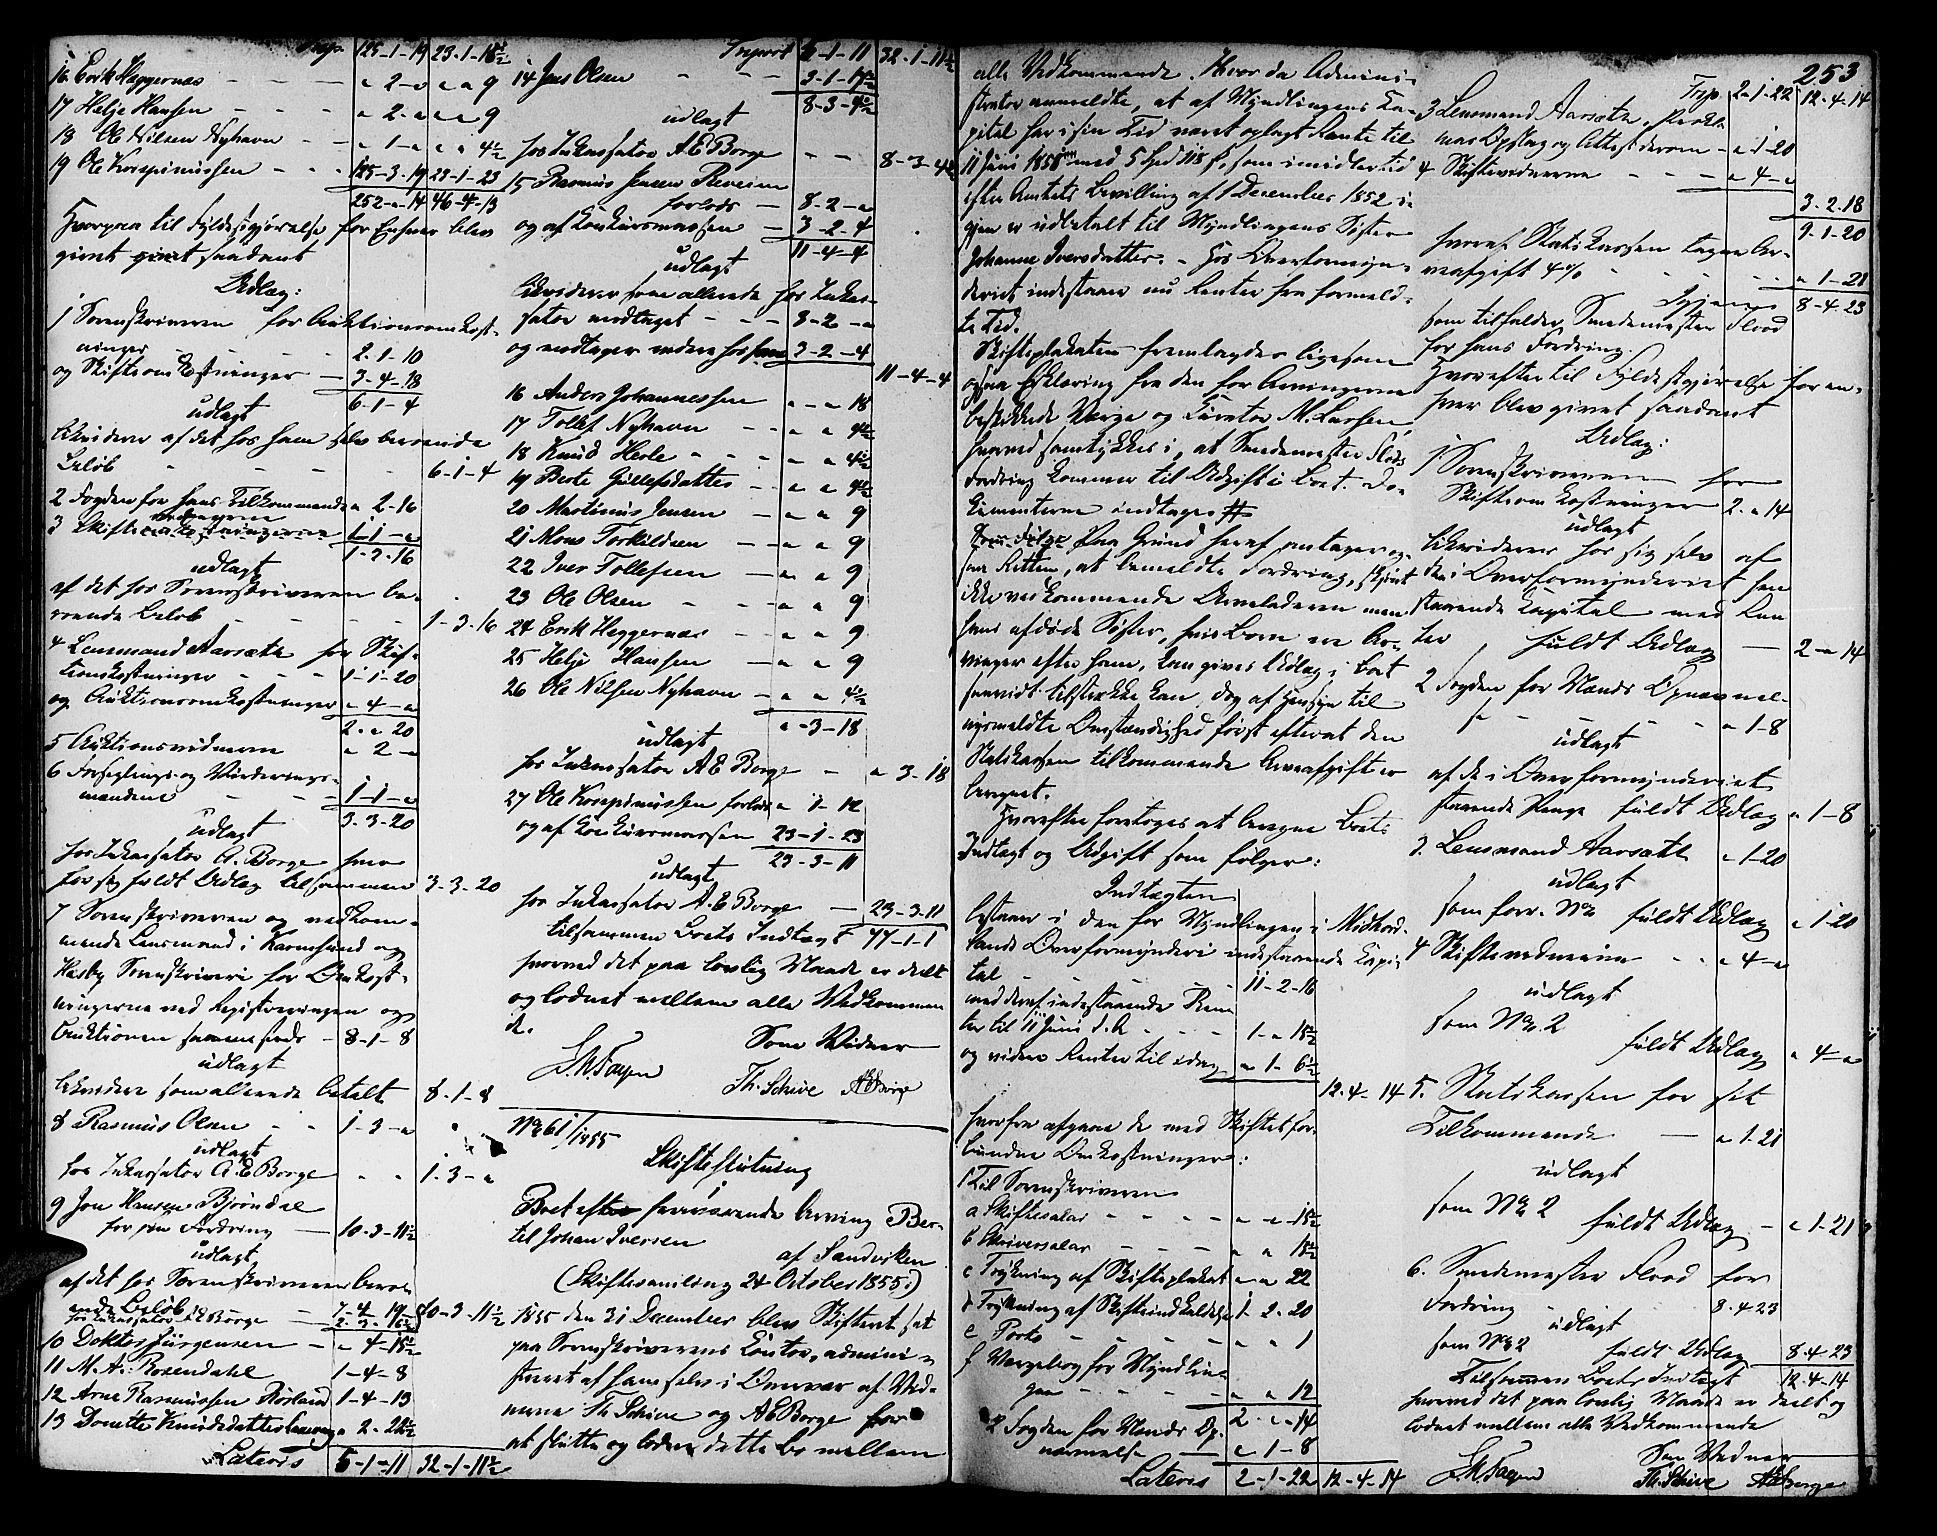 Trsp. 125-1-19 23-1-15½
16 Erik Heggernæs - - - " 2-" " " 9
17 Helje Hansen - - - " 2-" " " 9
18 Ole Nilsen Nyhavn - - " 1-" " " 4½
19 Ole Korspinussen - - 125-3-19 23-1-23
252-"-14 46-4-13
Hvorpaa til Fyldestgjørelse for Enhver blev
givet saadant
Udlæg:
1 Sorenskriveren for Auktionsomkost-
ninger - 2-1-10
og Skifteomkostninger - 3-4-18
6-1-4
udlagt
likviderer af det hos ham selv beroende
Beløb - - - - 6-1-4
2 Fogden for hans Tilkommende " 2-16
3 Skiftevidnerne 1-1-"
1-3-16
udlagt
af det hos Sorenskriveren be-
roende Beløb - - - 1-3-16
4 Lensmand Aarsæth for Skif-
tionskostninger - - - 1-1-20
og Auktionsomkostninger " 4-"
2-"-20
5 Auktionsvidnerne " 2-"
6 Forseglings- og Vurderings-
mændene - - 1-1-"
3-3-20
udlagt
hos Inkassator A. Borge hver
for sig fuldt Udlæg tilsammen 3-3-20
7 Sorenskriveren og vedkom-
mende Lensmand i Karmsund og
Hesby Sorenskriveri for Omkost-
ningerne ved Registreringen og
Auktionen sammesteds - 8-1-8
udlagt
likvidere som allerede betalt 8-1-8
8 Rasmus Olsen - - 1-3-"
udlagt
hos Inkassator A E Borge - - 1-3-"
9 Jon Hansen Bjørndal
for sin Fordring - 10-3-11½
udlagt
af det hos Sorenskriveren bero-
ende Beløb - 7-4-19
hos Inkassator A E Borge - 2-3-16½ 10-3-11½
10 Doktor Jürgensen - " 4-15½
11 M. A. Rosendahl 1-4-8
12 Arne Rasmussen Røsland 1-4-13
13 Dorette Knudsdatter " 2-22½
Lateris 5-1-11 32-1-11½
Transport 5-1-11 32-1-11½
14 Jens Olsen - - 3-1-17½
8-3-4½
udlagt
hos Inkassator A E Borge - - 8-3-4½
15 Rasmus Jensen Reveim
forlods - 8-2-"
og af Konkursmassen - 3-2-4
11-4-4
udlagt
likviderer som allerede hos Inkas-
sator modtaget - - - 8-2-"
og modtager videre hos ham 3-2-4
11-4-4
16 Anders Johannessen " - " 18
17 Tollef Nyhavn - - " " 9½
18 Knud Herle - - - " " 4½
19 Berte Gullesdatter - " " 9½
20 Martinus Jensen - " " 9
21 Mons Torkildsen - " " 9
22 Iver Tollefsen - " " 9
23 Ole Olsen - - " " 9
24 Erik Heggernæs - " " 9
25 Helje Hansen - " " 9
26 Ole Nilsen Nyhavn - " " 4½
" -3-18
udlagt
hos Inkassator A E Borge - " 3-18
27 Ole Korspinussen forlods " 1-12
og af Konkursmassen 23-1-23
23-3-11
udlagt
hos Inkassator A. E Borge - 23-3-11
tilsammen Boets Indtægt 77-1-1
hvorved det paa lovlig Maade er deelt
og lodnet mellem alle Vedkommen-
de.
Som Vidner
Th. Schive AEBorge
No 61/1855
Skifteslutning
i
Boet efter fraværende Arving Ber-
til Johan Iversen
af Sandviken
(Skiftesamling 24 October 1855.)
1855 den 31 December blev Skifteret sat
paa Sorenskriverens Contor, admini-
streret af ham selv i Overvær af Vid-
nerne Th. Schive og A E Borge for
at slutte og lodne dette Bo mellem
253
alle Vedkommende. Hvor da Admini-
strator anmeldte, at af Myndlingens Ka-
pital har i sin Tid været oplagt Rente til
11 Juni 1850 med 5 Spd 118 s, som imidlertid
efter Amtets Bevilling af 1 December 1852 i-
gjen er udbetalt til Myndlingens Søster
Johanne Iversdatter. - Hos Overformyn-
deriet indestaaer nu Renter fra formeld-
te Tid.
Skifteplakaten fremlagdes ligesom
ogsaa Erklæring fra den for Arvingerne
beskikkede Værge og Curator M. Larsen
hvorved samtykkes i, at Smedemester Flods
Fordring kommer til Udgift i Boet. Do-
kumenterne indtages #
Paa Grund heraf antager og-
saa Retten, at bemeldte Fordring, skjønt
ikke vedkommende Arveladeren men
hans afdøde Søster, hvis Børn ere Ar-
vinger efter ham, kan gives Udlæg i Boet
saavidt tilstrække kan, dog af Hensyn til
nysmeldte Omstændighed først efterat den
Statskassen tilkommende Arveafgift er
beregnet.
Hvorefter foretoges at beregne Boets
Indtægt og Udgift som følger:
Indtægten
bestaaer i den for Myndlingen i Nordhord-
lands Overformynderi indestaaende Kapi-
tal - - - 11-2-16
med deraf indestaaende Ren-
ter til 11 Juni d. A. - - 1-"-15½
og videre Renter til idag " 1-6½
12-4-14
hvorfra afgaaer de med Skiftet for-
bundne Omkostninger:
1 Til Sorenskriveren
a Skiftesalær - - - " " 15½
b Skriversalær - - - " " 15½
c Trykning af Skifteplakat " " 22
d Trykning af Skifteindkaldelse 1-2-20
e Porto - - - " " 1
f Værgebog for Myndlin-
gen - - - - " " 12
2-"-14
2 Fogden for Mænds Op-
nævnelse - " 1-8
Lateris 2-1-22 12-4-14
Trsp 2-1-22 12-4-14
3 Lensmand Aarsæth, Plaka-
ters Opslag og Attest derom - " 1-20
4 Skiftevidnerne - - - " 4-"
3-2-18
9-1-20
hvoraf Statskassen tager Ar-
veafgift 4% - - - - " 1-21
Igjen 8-4-23
som tilfalder Smedemester Flood
for hans Fordring.
Hvorefter til Fyldestgjørelse for en-
hver blev givet saadant
Udlæg:
1 Sorenskriveren for
Skifteomkostninger 2-"-14
udlagt
likviderer hos sig selv af
den i Overformynderiet hen-
staaende Kapital med Ren-
ter
fuldt Udlæg - 2-"-14
2 Fogden for Mænds Opnævnel-
se - - - " 1-8
udlagt
af de i Overformynderiet
staaende Penge fuldt Udlæg " 1-8
3. Lensmand Aarsæth " 1-20
udlagt
som forr. No fuldt Udlæg " 1-20
4 Skiftevidnerne - - " 4-"
udlagt
som No 2
fuldt Udlæg " 4-"
5. Statskassen for sit
Tilkommende - " 1-21
udlagt
som No 2
fuldt Udlæg - " 1-21
6. Smedemester Flood for
Fordring - 8-4-23
udlagt
som No 2 fuldt Udlæg 8-4-23
Tilsammen Boets Indtægt 12-4-14
hvorved det paa lovlig Maade er deelt og
lodnet mellem alle Vedkommende
Som Vidner
Th. Schive AEBorge